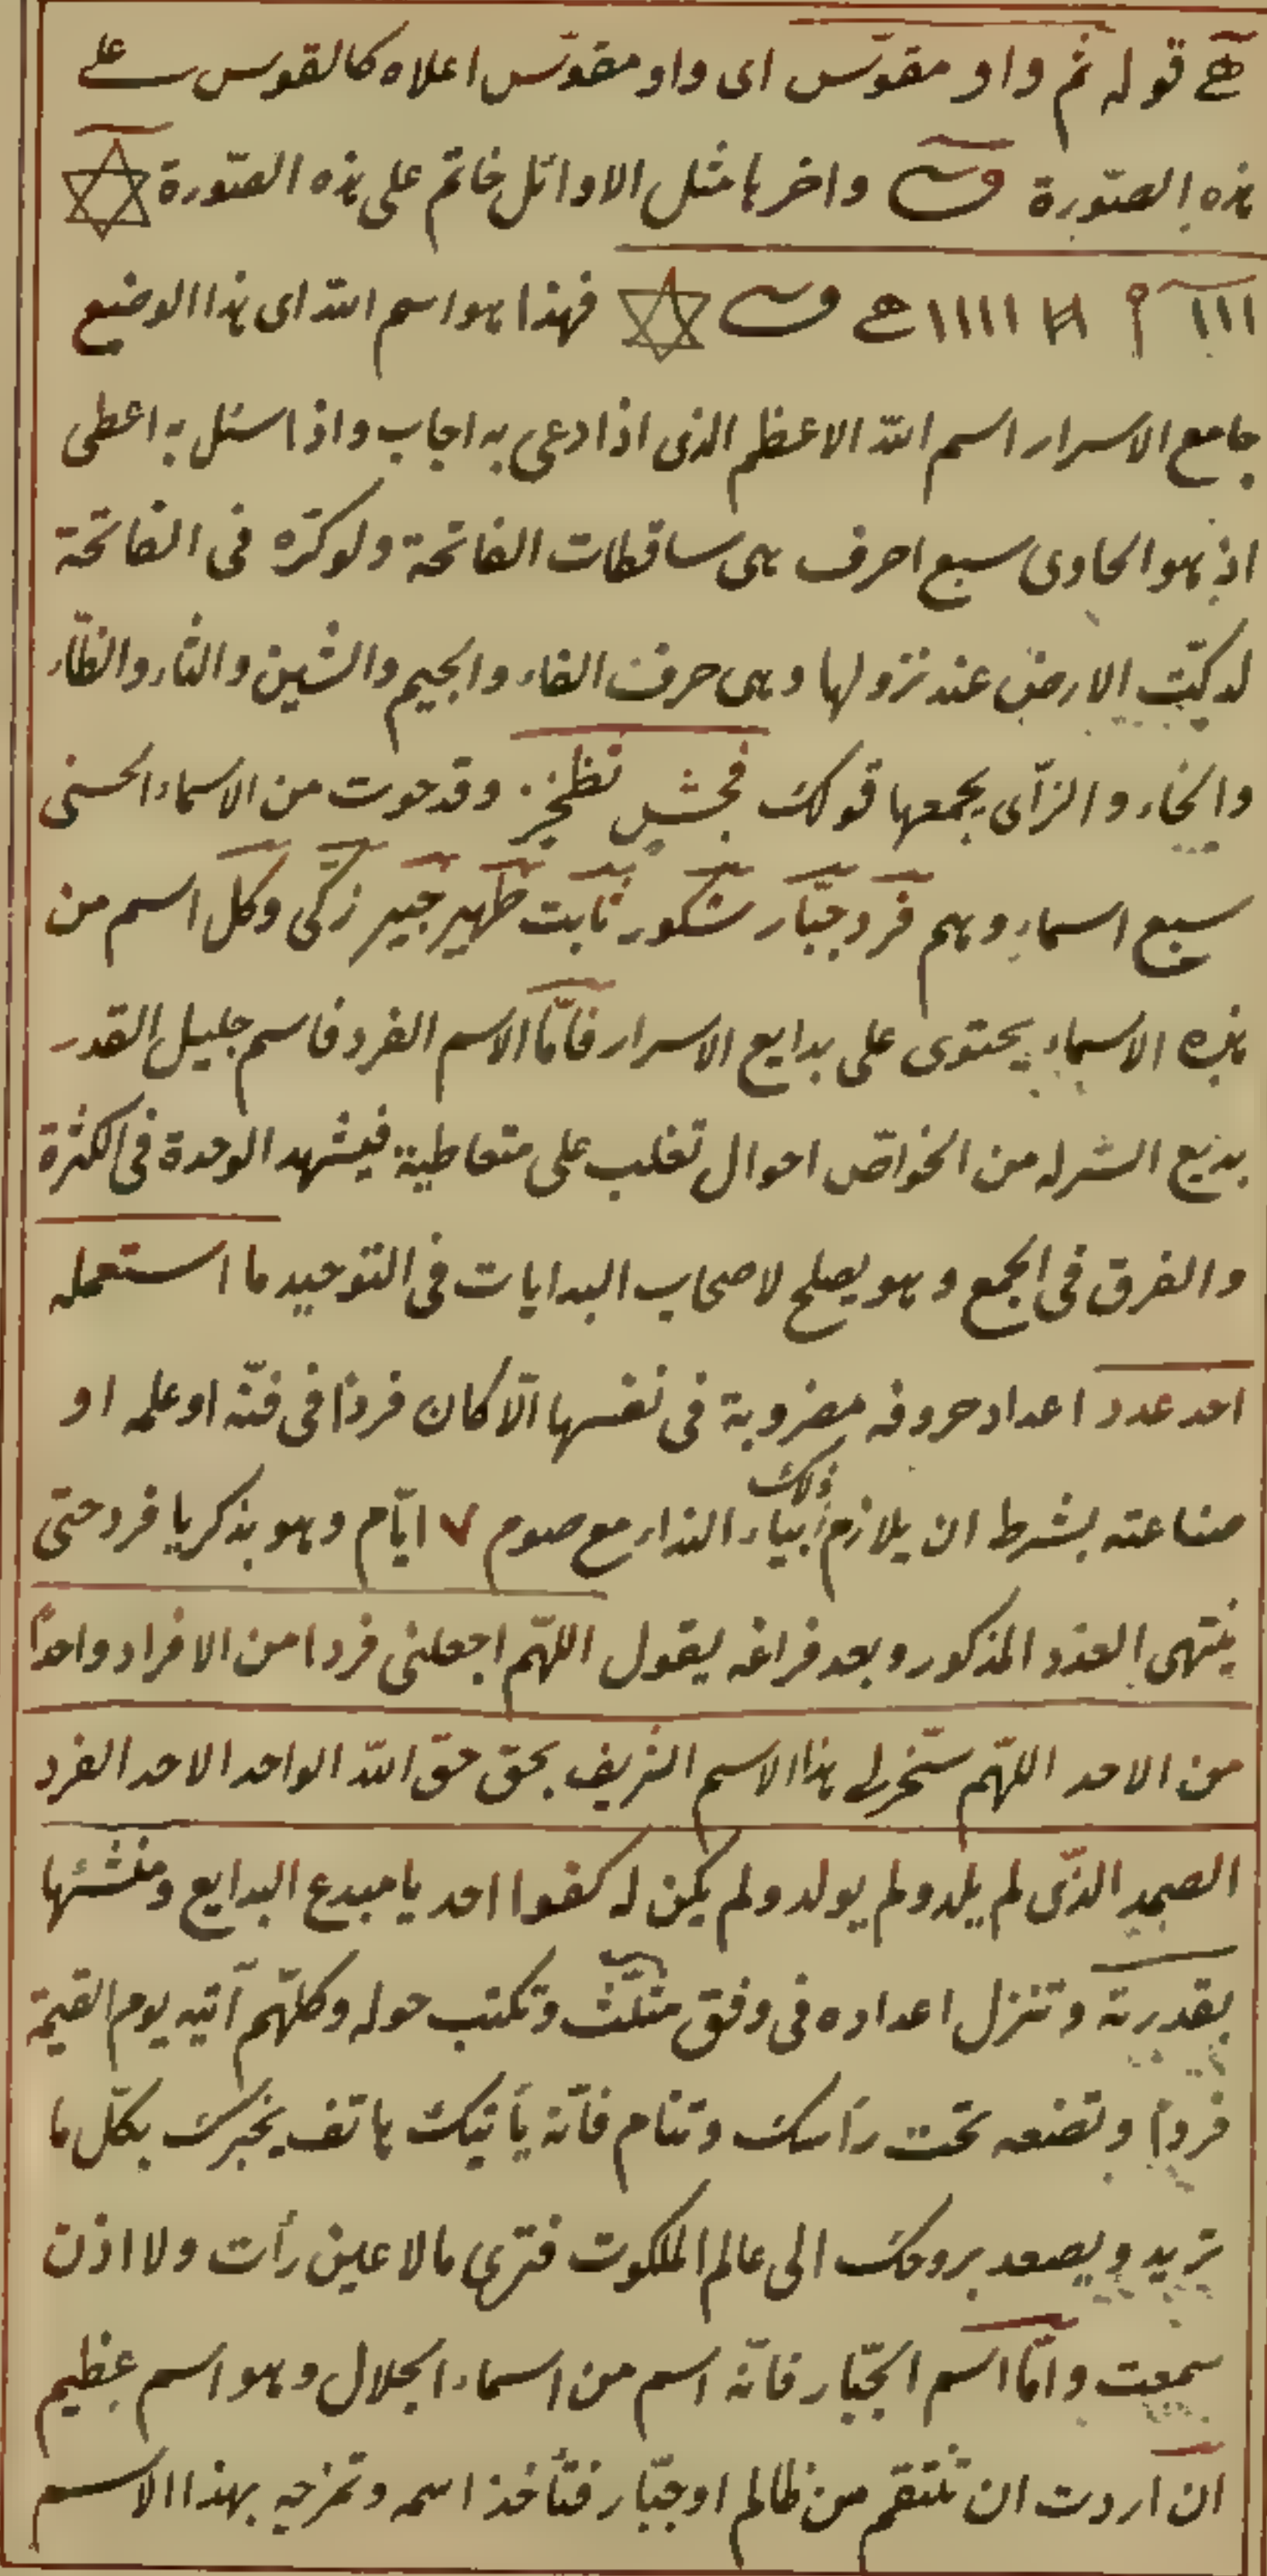 ھے قوله ثم واو مقوّس اى واو مقوّس اعلاه كالقوس على
هذه الصّورة و واخرها مثل الاوائل خاتم على هذه الصّورة ✡
ااا م # اااا ھے و ✡ فهذا هو اسم اللّه اى هذا الوضيع
جامع الاسرار اسم اللّه الاعظم الذى اذا دعى به اجاب واذا سئل به اعطى
اذ هو الحاوى سبع احرف هى ساقطات الفاتحة ولو كرّه فى الفاتحة
لدكّت الارض عند نزولها وهى حرف الفاء والجيم والشين والثاء والظّاء
والخاء والزّاى يجمعها قولك فجش ثظخز وقد حوت من الاسماء الحسنى
سبع اسماء وهم فرد جبّار شكور ثابت ظهير خبير زكى وكل اسم من
هذه الاسماء يحتوى على بدايع الاسرار فامّا الاسم الفرد فاسم جليل القدر
بديع السّر له من الخواصّ احوال تغلب على متعاطية فيشهد الوحدة فى الكثرة
والفرق فى الجمع وهو يصلح لاصحاب البدايات فى التوحيد ما استعمله
احد عدد اعداد حروفه مضروبة فى نفسها الّا كان فردًا فى فنّه او علمه او
صناعته بشرط ان يلازم ذلك بياء النداء مع صوم ٧ ايّام وهو يذكر يا فرد حتى
ينتهى العدد المذكور وبعد فراغه يقول اللّهم اجعلنى فردا من الافراد واحدًا
من الاحد اللّهم سخّر لى هذا الاسم الشريف بحق حق اللّه الواحد الاحد الفرد
الصمد الذّى لم يلد ولم يولد ولم يكن له كفوا احد يا مبدع البدايع ومنشئها
بقدرته وتنزل اعداده فى وفق مثلّث وتكتب حوله وكلّهم آتيه يوم القيمة
فردا وتضعه تحت رأسك وتنام فانّه يأتيك هاتف يخبرك بكلّ ما
تريد ويصعد بروحك الى عالم الملكوت فترى ما لا عين رأت ولا اذن
سمعت وامّا اسم الجبّار فانّه اسم من اسماء الجلال وهو اسم عظيم
ان اردت ان تنتقم من ظالم او جبّار فتأخذ اسمه وتمزجه بهذا الاسم